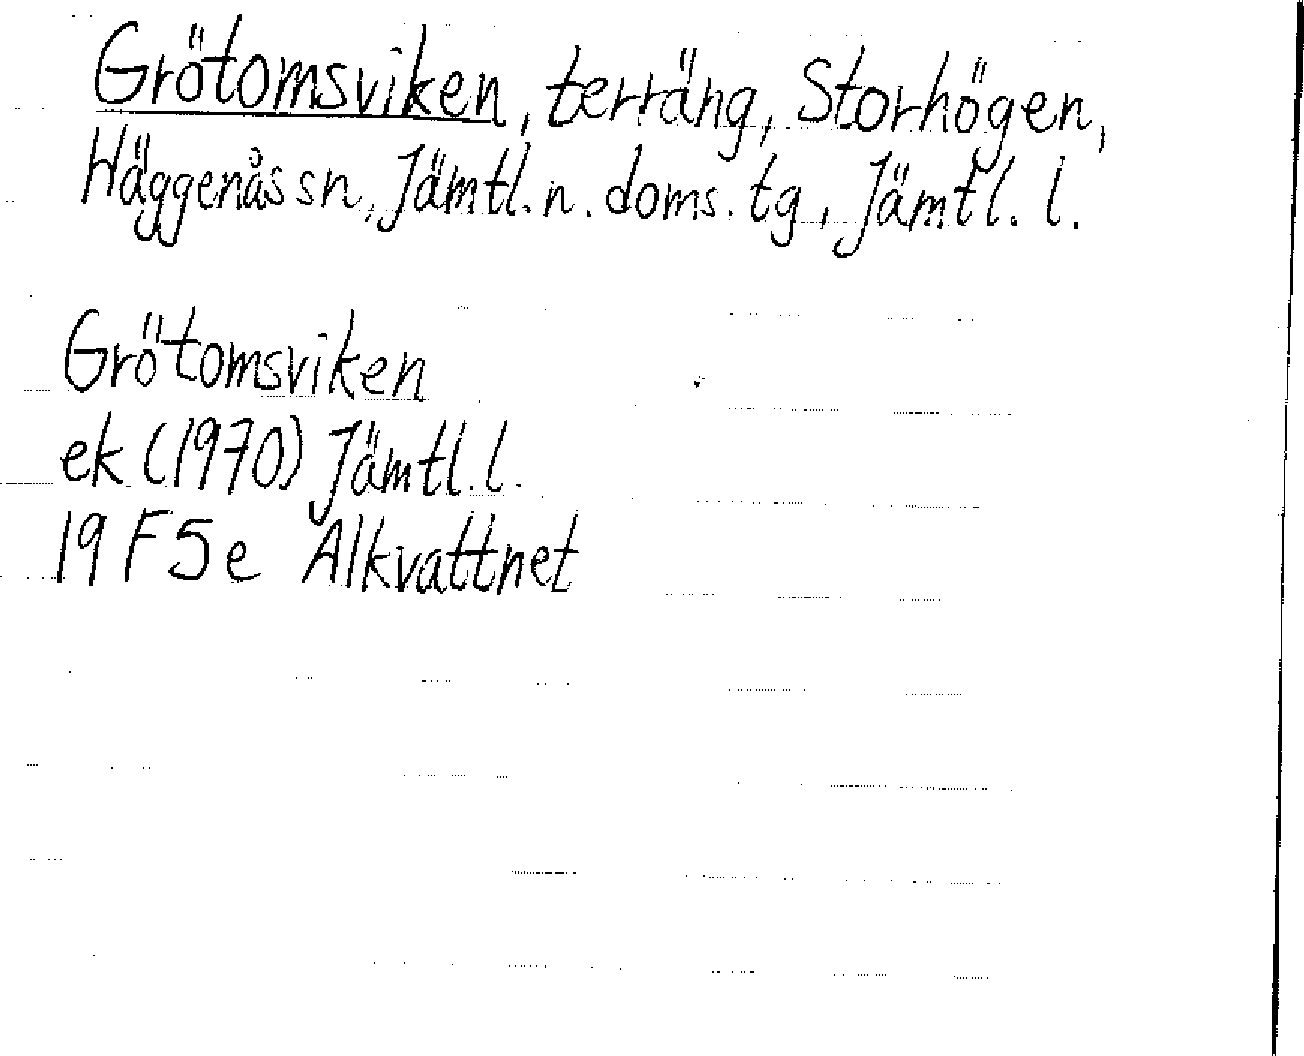 Grötomsviken, terräng, Storhögen,
Häggenås sn, Jämtl. n. doms. tg, Jämtl. l.
Grötomsviken
ek (1970) Jämtl. l.
19 F 5 e Alkvattnet